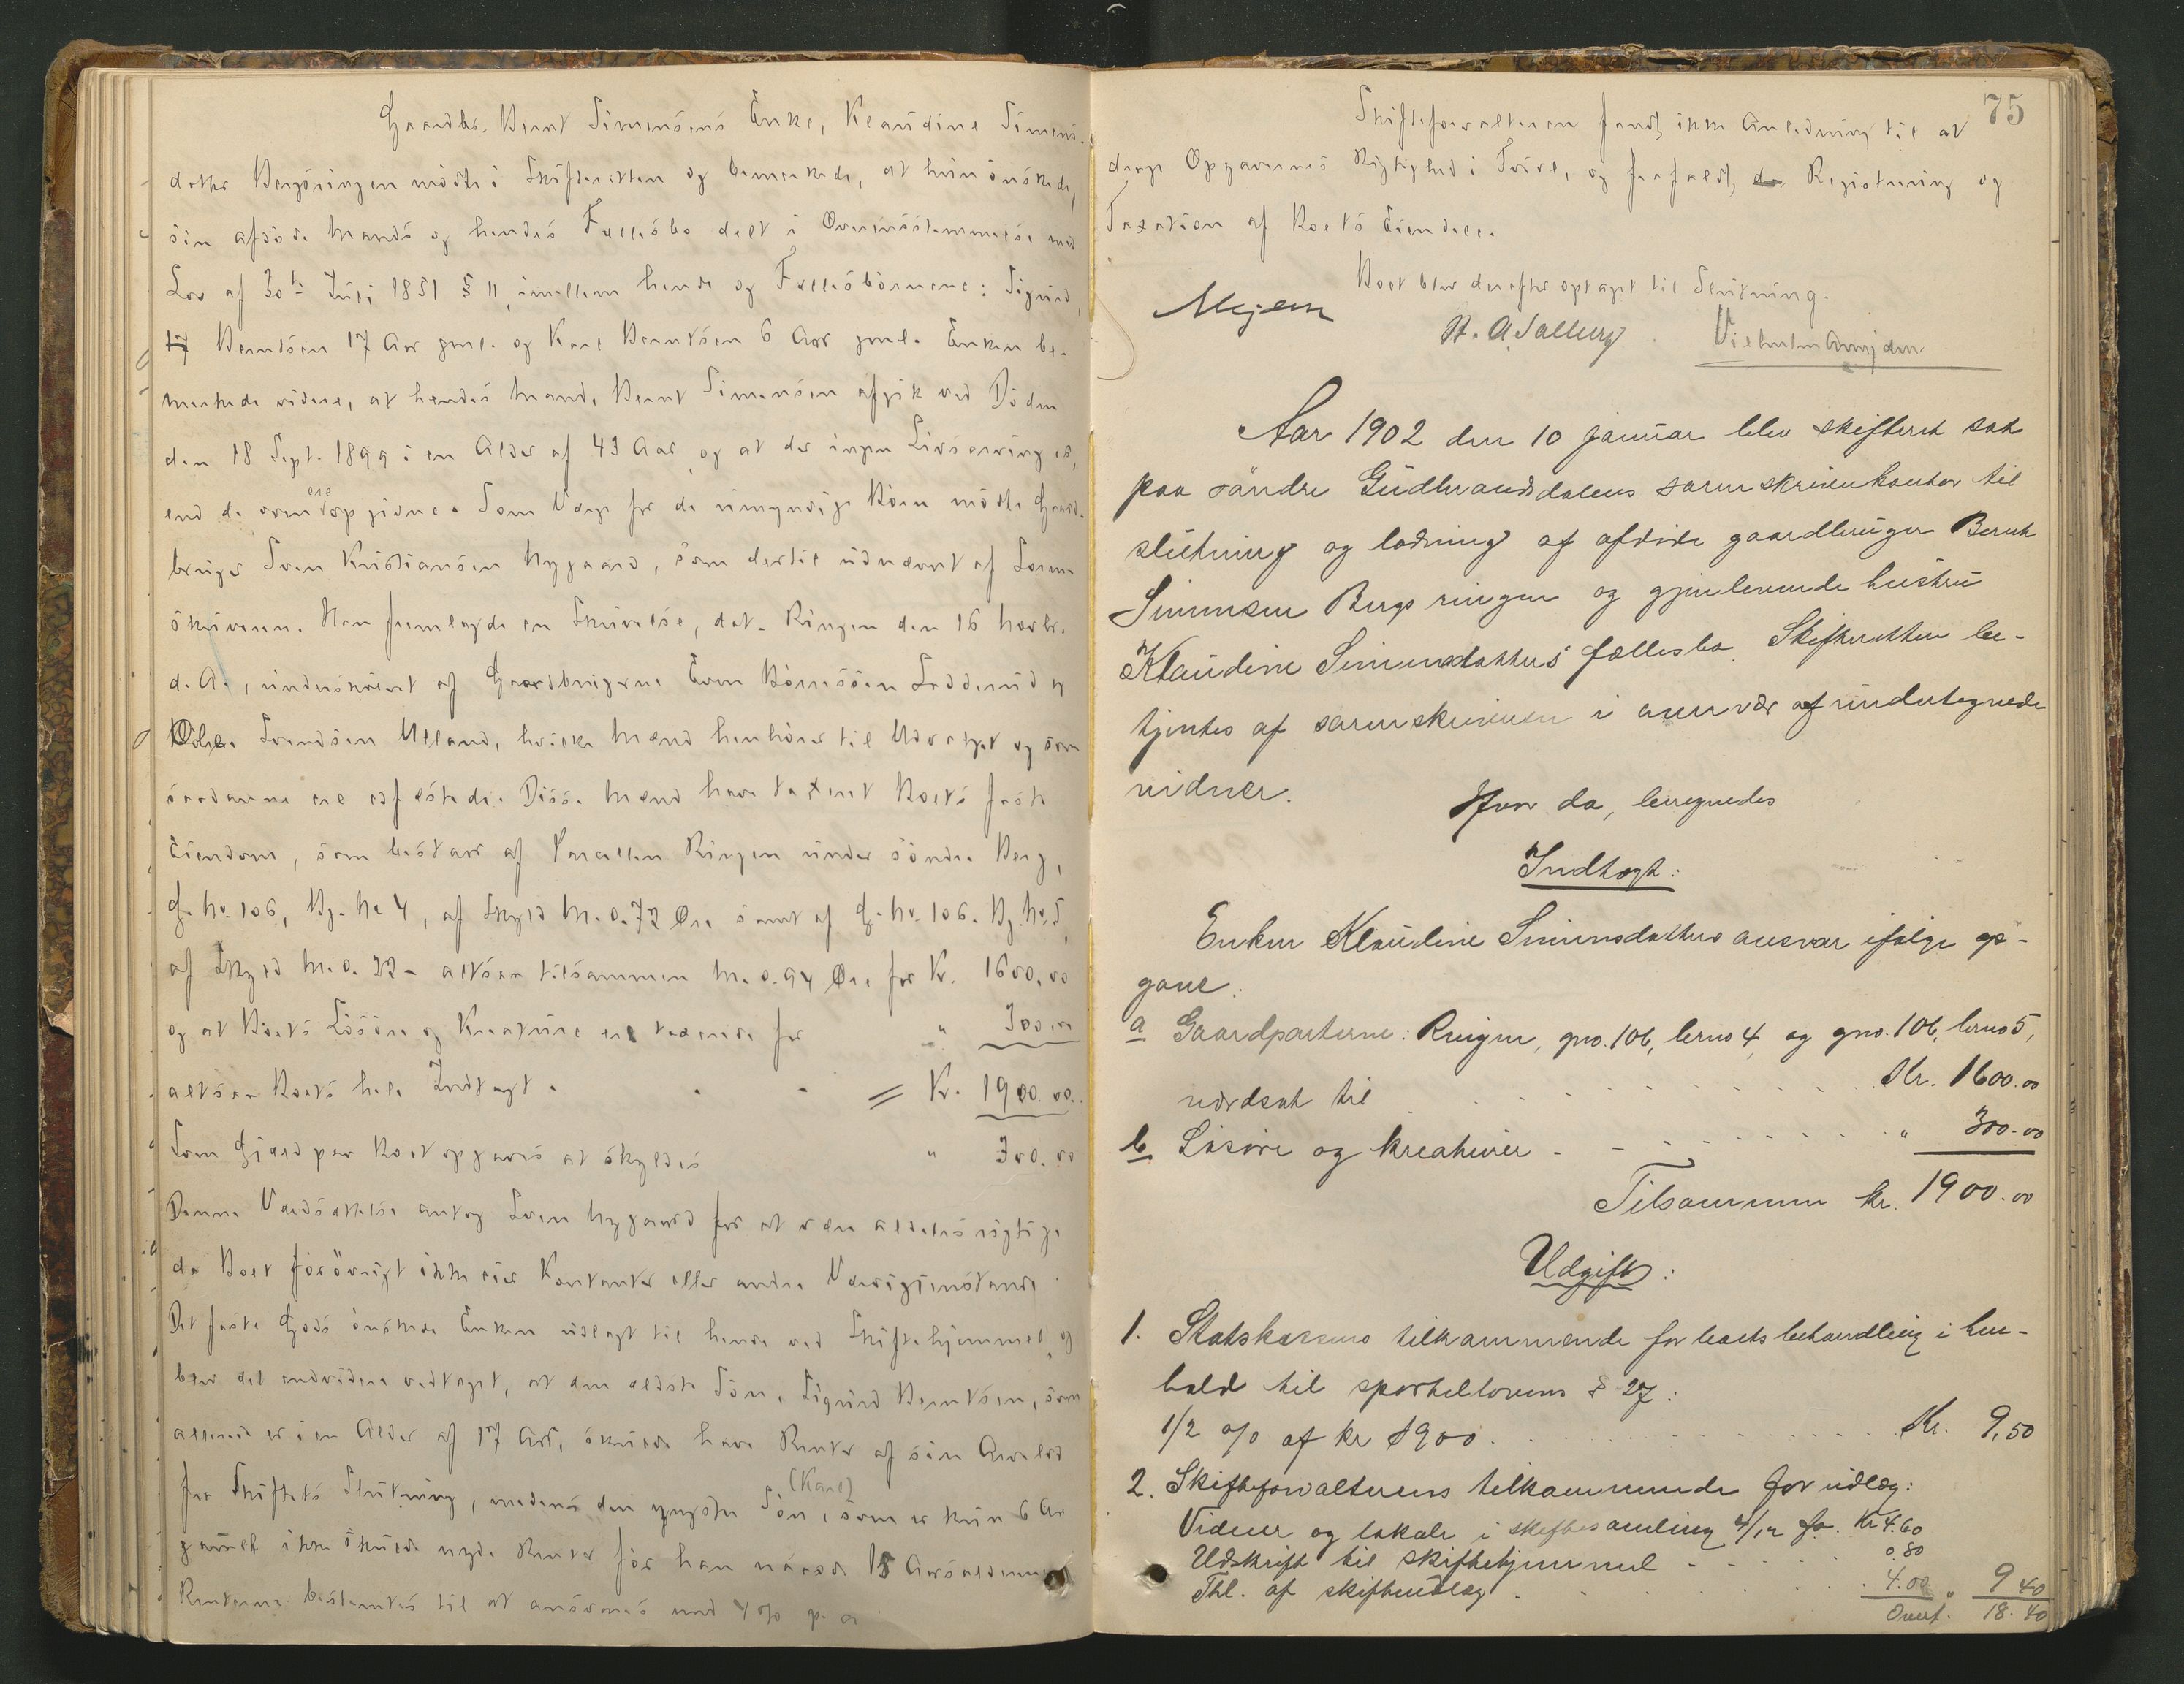 Gaardbr. Bernt Simensens Enke, Klaudine Simens-
datter Bergsringen mödte i Skifteretten og bemerkede, at hun önskede,
sin afdöde Mands og hendes Fællesbo delt i Overensstemmelse med
Lov af 30te Juli 1851 § 11, imellem hende og Fællesbörnene: Sigurd
Berntsen 17 Aar gml. og Karl Berntsen 6 Aar gml. Enken be-
merkede videre, at hendes Mand, Bernt Simensen afgik ved Döden
den 18 Sept. 1899 i en Alder af 43 Aar og at der ingen Livsarving er,
end de ovenfor opgivne. Som Værge for de umyndige Börn mödte Gaard-
bruger Sven Kristiansen Nygaard, som dertil udnævnt af Soren-
skriveren. Han fremlagde en Skrivelse, dat. Ringen den 16 Novbr.
d. A., underskrevet af Gaardbrugerne Even Börresen Ladderud og
Ole Svendsen Ulland, hvilke Mænd henhörer til Udvalget og som
saadanne ere edfæstede. Disse Mænd have taxeret Boets faste
Eiendom, som bestaar af Parcellen Ringen under söndre Berg,
G. No. 106, B. No 4, af Skyld M. 0.72 Øre samt af G. No. 106. B. No. 5,
af Skyld M. 0.22 - altsaa tilsammen M. 0.94 Øre for Kr. 1600.00
og at Boets Lösöre og Kreature ere taxerede for " 300.00
altsaa Boets hele Indtægt . . . = Kr. 1900.00.
Som Gjæld paa Boet opgaves at skyldes " 300.00
Denne Værdsættelse antog Sven Nygaard for at være aldeles rigtig,
da Boet forövrigt ikke eier Kontanter eller andre Værdigjenstande
Det faste Gods önskede Enken udlagt til hende ved Skiftehjemmel, og
blev det endvidere vedtaget, at den ældste Sön, Sigurd Berntsen, som
allerede er i en Alder af 17 Aar, skulde have Renter af sin Arvelod
fra Skiftets Slutning, medens den yngste Sön, (Karl) som er kun 6 Aar
gammel ikke skulde nyde Renter för han naaede 15 Aarsalderen.
Renterne bestemtes til at ansvares med 4 % p. a.
75
Skifteforvalteren fandt ikke Anledning til at
drage Opgavernes Rigtighed i Tvivl, og frafaldt Registrering og
Taxation af Boets Eiendele.
Boet blev derefter optaget til Slutning.
Mejem H. A. Salberg Vilhelm
Aar 1902 den 10 januar blev skifteret sat
paa söndre Gudbrandsdalens sorenskriverkontor til
slutning og lodning af afdöde gaardbruger Bernt
Simensen Bergsringen og gjenlevende hustru
Klaudine Simensdatters fællesbo. Skifteretten be-
tjentes af sorenskriveren i overvær af undertegnede
vidner.
Hvor da, beregnedes
Indtægt:
Enken Klaudine Simensdatters ansvar ifölge op-
gave:
a Gaardparterne: Ringen, gno. 106, brno 4, og gno. 106, brno 5,
værdsat til . . . . . . . Kr. 1600.00
b Lösöre og kreaturer - - - - - . . . " 300.00
Tilsammen kr. 1900.00
Udgift:
1. Statskassens tilkommende for boets behandling i hen-
hold til sportellovens § 27:
1/2 o/o af kr 1900 . . . . . . . Kr. 9,50
2. Skifteforvalterens tilkommende for udlæg:
Vidner og lokale i skiftesamling 4/12 f.a. Kr 4.60
Udskrift til skiftehjemmel - - - . . 0.80
Thl. af skifteudlæg . . . . 4.00 " 9 40
Overf. 18.40